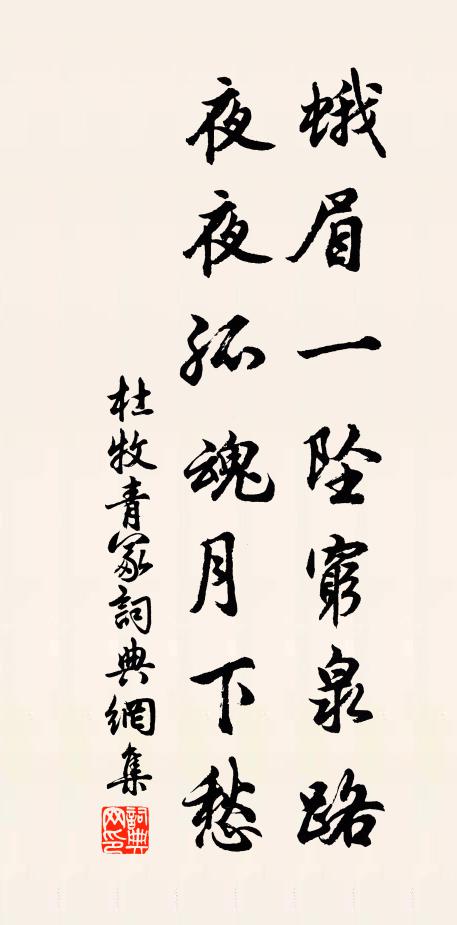 蛾眉一坠窮泉路
夜夜孤魂月下愁
杜牧青冢詞典網集
詞典网印